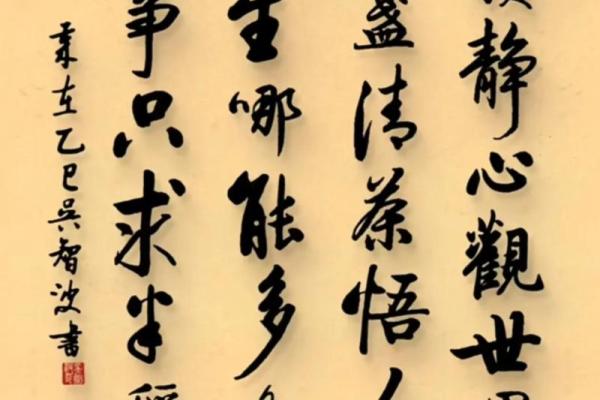 静心觀世
盏清茶悟人
生哪能多
争只求半
歲在乙巳吴智波書